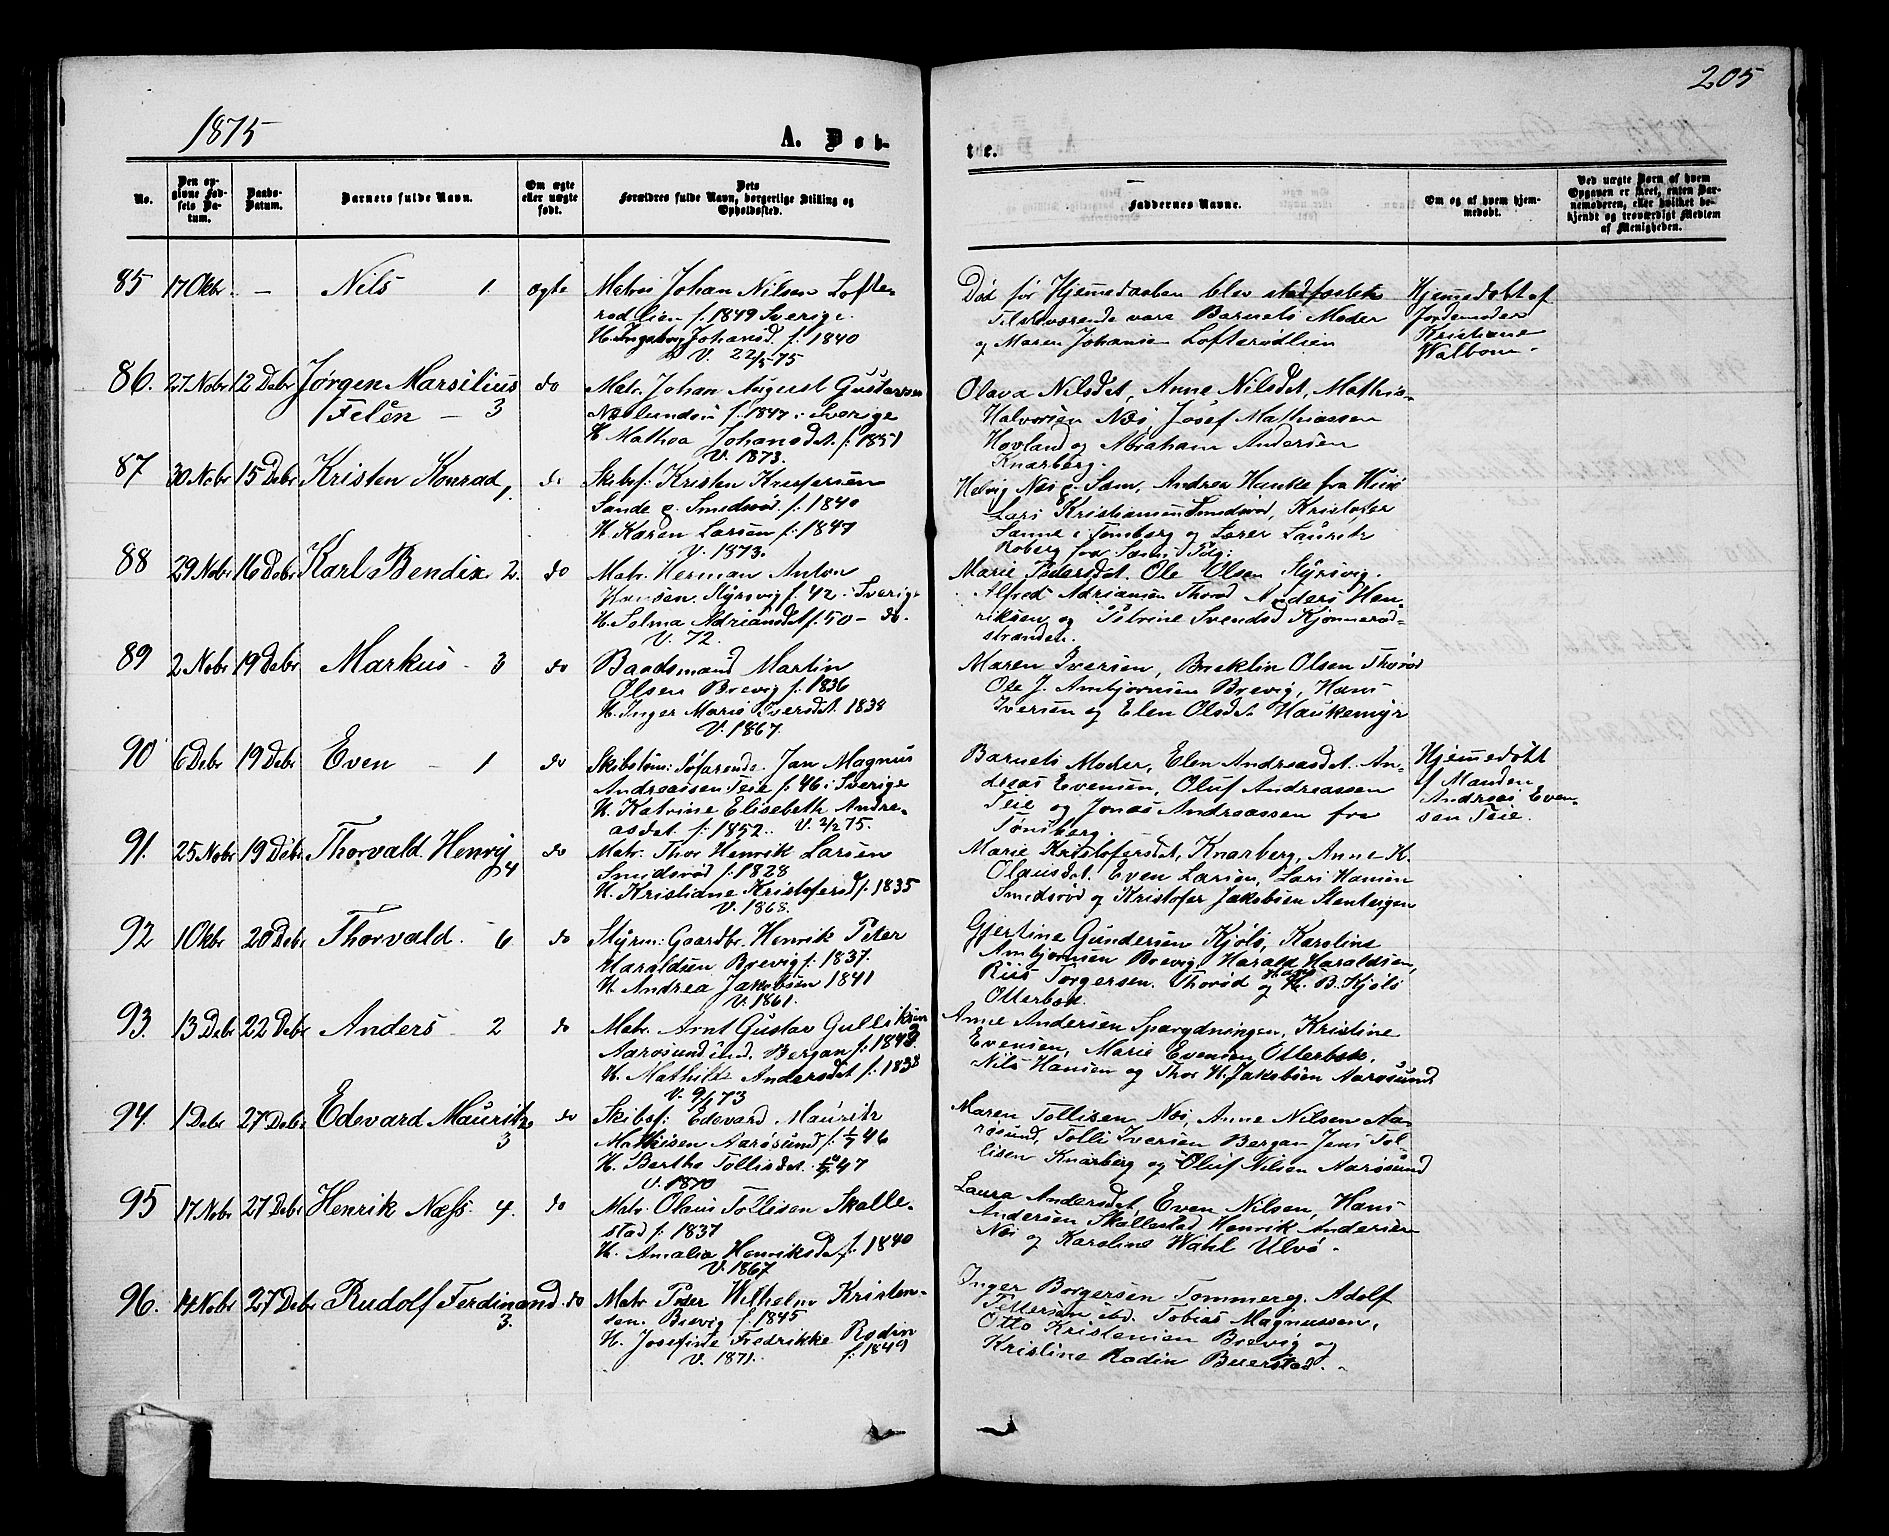 205
1875
A. Døb-
te.
No.
Den op-
givne Fød-
sels Da-
tum.
Daabs-
Datum.
Barnets fulde Navn.
Om ægte
eller uægte
født.
Dets
Forældres fulde Navn, borgerlige Stilling og
Opholdssted.
Faddernes Navne.
Om og af hvem hjem-
medøbt.
Ved uægte Børn af hvem
Opgaven er skeet, enten Bar-
nemoderen, eller hvilket be-
kjendt og troværdigt Medlem
af Menigheden.
85 17 Okbr. — Nils 1 ægte
Matros Johan Nilsen Lofte-
rødlien f. 1849 Sverige.
H. Ingeborg Johansd. f. 1840
V. 22/5 75
Død før Hjemedaaben blev stadfæstet
Tilstedværende vare Barnets Moder
og Maren Johansen Lofterødlien
Hjemmedøbt af
Jordemoder
Kristiane
Walbom.
86. 27 Nobr 12 Debr Jørgen Marsilius
Felén — 3 do
Matr. Johan August Gustavsen
f. 1847 i Sverige
H. Mathea Johansdet. f. 1851
V. 1873.
Olava Nilsdet, Anne Nilsdet, Mathis
Halvorsen Næs, Josef Mathiassen
Hovland og Abraham Andersen
Knarberg.
87 30 Nobr 15 Debr Kristen Konrad 1. do
Skibsf: Kristen Kristfersen
Sande g. Smidsrød f. 1840
H. Karen Larsen f. 1847
V. 1873.
Helvig Næs g. Sem, Andrea Hanke fra Hus
Lars Kristiansen Smidsrød, Kristofer
Sanne i Tønsberg og Laurits
Roberg fra Sems Pdg:
88 29 Nobr 16 Debr Karl Bendix 2. do
Matr. Herman Anton
Hansen. Styrsvig f. 42. Sverige
H. Selma Adriansdet f. 50 - do.
V. 72.
Marie Pedersdet. Ole Olsen Styrsvig.
Alfred Adriansen Thorød Anders Hen-
riksen og Petrine Svendsd Kjønnerød-
stranden.
89 2 Nobr 19 Debr Markus - 3 do
Baadsmand Martin
Olsen Brevig f. 1836
H. Inger Marie Iversdet. 1838
V. 1867.
Maren Iversen, Olsen Thorød
Ole J. Ambjørnsen Brevig, Hans
Iversen og Elen Olsdet. Haukemyr
90 6 Debr 19 Debr Even - 1 do
Skibstøm: Søfarende. Jan Magnus
Andreassen Teie f. 46 i Sverige
H. Katrine Elisebeth Andre-
asdet. f. 1852. V. 2/2 75.
Barnets Moder, Elen Andreasdet. An-
dreas Evensen, Oluf Andreassen
Teie og Jonas Andreassen fra
Tønsberg.
Hjemmedøbt
af Manden
Andreas Even-
sen Teie.
91. 25 Nobr 19 Debr Thorvald Henrij 4 do
Matr. Thor Henrik Larsen
Smidsrød f. 1828
H. Kristiane Kristofersd f. 1835
V. 1868.
Marie Kristofersdet, Knarberg, Anne K.
Olausdet. Even Larsen, Lars Hansen
Smidsrød og Kristofer Jakobsen Stenbergen
92 1 Okbr 20 Debr Thorvald. - 6 do
Styrm: Gaardbr. Henrik Peter
Haraldsen Brevig f. 1837.
H. Andrea Jakobsen 1841
V. 1861.
Gjertine Gundersen Kjølø, Karoline
Ambjørnsen Brevig, Harald Haraldsen,
Riis Torgersen. Thorød og Hans H. B. Kjølø
Otterbek.
93. 13 Debr 22 Debr Anders - 2 do
Matr. Arnt Gustav Gulliksen
Aarøsund und. Bergan f. 1848.
H. Mathilde Andersdet f. 1838
V. 9/1 73
Anne Andersen Sparydningen, Kristine
Evensen, Marie Evensen Otterbek.
Nils Hansen og Thor H. Jakobsen Aarøsund
94. 1 Debr 27 Debr Edevard Mauritz
3 do
Skibsf: Edevard Mauritz
Mathisen Aarøsund f. 1/7 46
H. Berthe Tollisdet. 47
V. 1870
Maren Tollisen Næs, Anne Nilsen Aa-
røsund, Tolli Iversen Bergan Jens Tol-
lisen Knarberg og Oluf Nilsen Aarøsund
95 17 Nobr 27 Debr Henrik Næss. 4. do
Matr. Olaus Tollisen Skalle-
stad f. 1837
H. Amalia Henriksdet f. 1840
V. 1867
Laura Andersdet, Even Nilsen, Hans
Andersen Skallestad Henrik Andersen
Næs og Karoline Wahl Ulvø.
96. 14 Nobr 27 Debr Rudolf Ferdinand
3. do
Matr Peter Wilhelm Kristen-
sen. Brevig f. 1845
H. Josefine Fredrikke Rodin
V. 1871. f. 1849
Inger Borgersen Tommereg. Adolf
Pettersen ibd. Tobias Magnussen,
Otto Kristensen Brevig og
Kristine Rodin Buerstad.